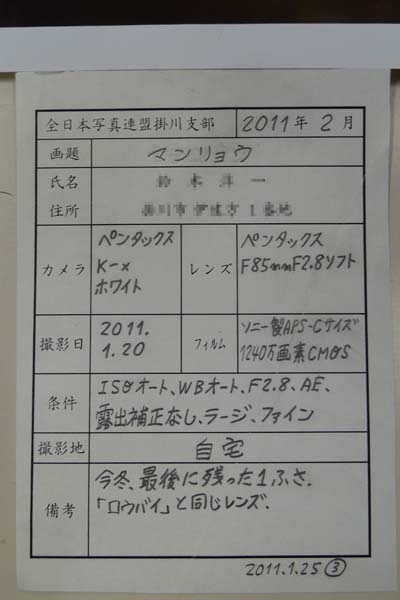 全日本写真連盟掛川支部 2011年 2月
画題 マンリョウ
氏名
住所
カメラ ペンタックス
K-x
ホワイト
レンズ ペンタックス
F85mmF2.8ソフト
撮影日 2011.
1.20
フィルム ソニー製APS-Cサイズ
1240万画素CMOS
条件 ISOオート、WBオート、F2.8、AE、
露出補正なし、ラージ、ファイン
撮影地 自宅
備考 今冬、最後に残った1ふさ.
「ロウバイ」と同じレンズ.
2011.1.25 ③